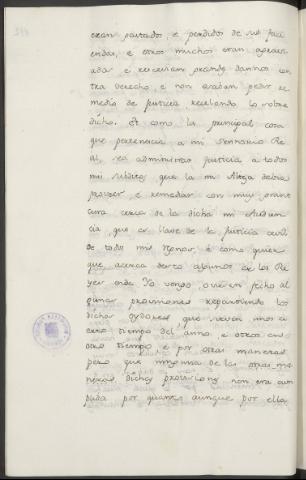 eran gastados e perdidos de sus faci
endas, e otros muchos eran agravi
ados e recevian grandes dannos con
tra derecho, e non osaban pedir re
medio de justicia recelando lo sobre
dicho. Et como la principal cosa
que pertenescia a mi Sennorio Re
al, sea administrar justicia a todos
mis subditos que la mi Alteza debia
proveer e remediar con muy grant
cura cerca de la dicha mi Audien
cia, que es llave de la justicia cevil
de todos mis Regnos, e como quier
que acerca desto algunos de los Re
yes onde Yo vengo, ovieron fecho al
gunas provisiones repartiendo los
dichos oydores que serven unos a
cierto tiempo del anno, e otros en
otro tiempo e por otras maneras
pero que ninguna de las otras ma
neras, dichas provisiones non era cum
plida por quanto aunque por ella